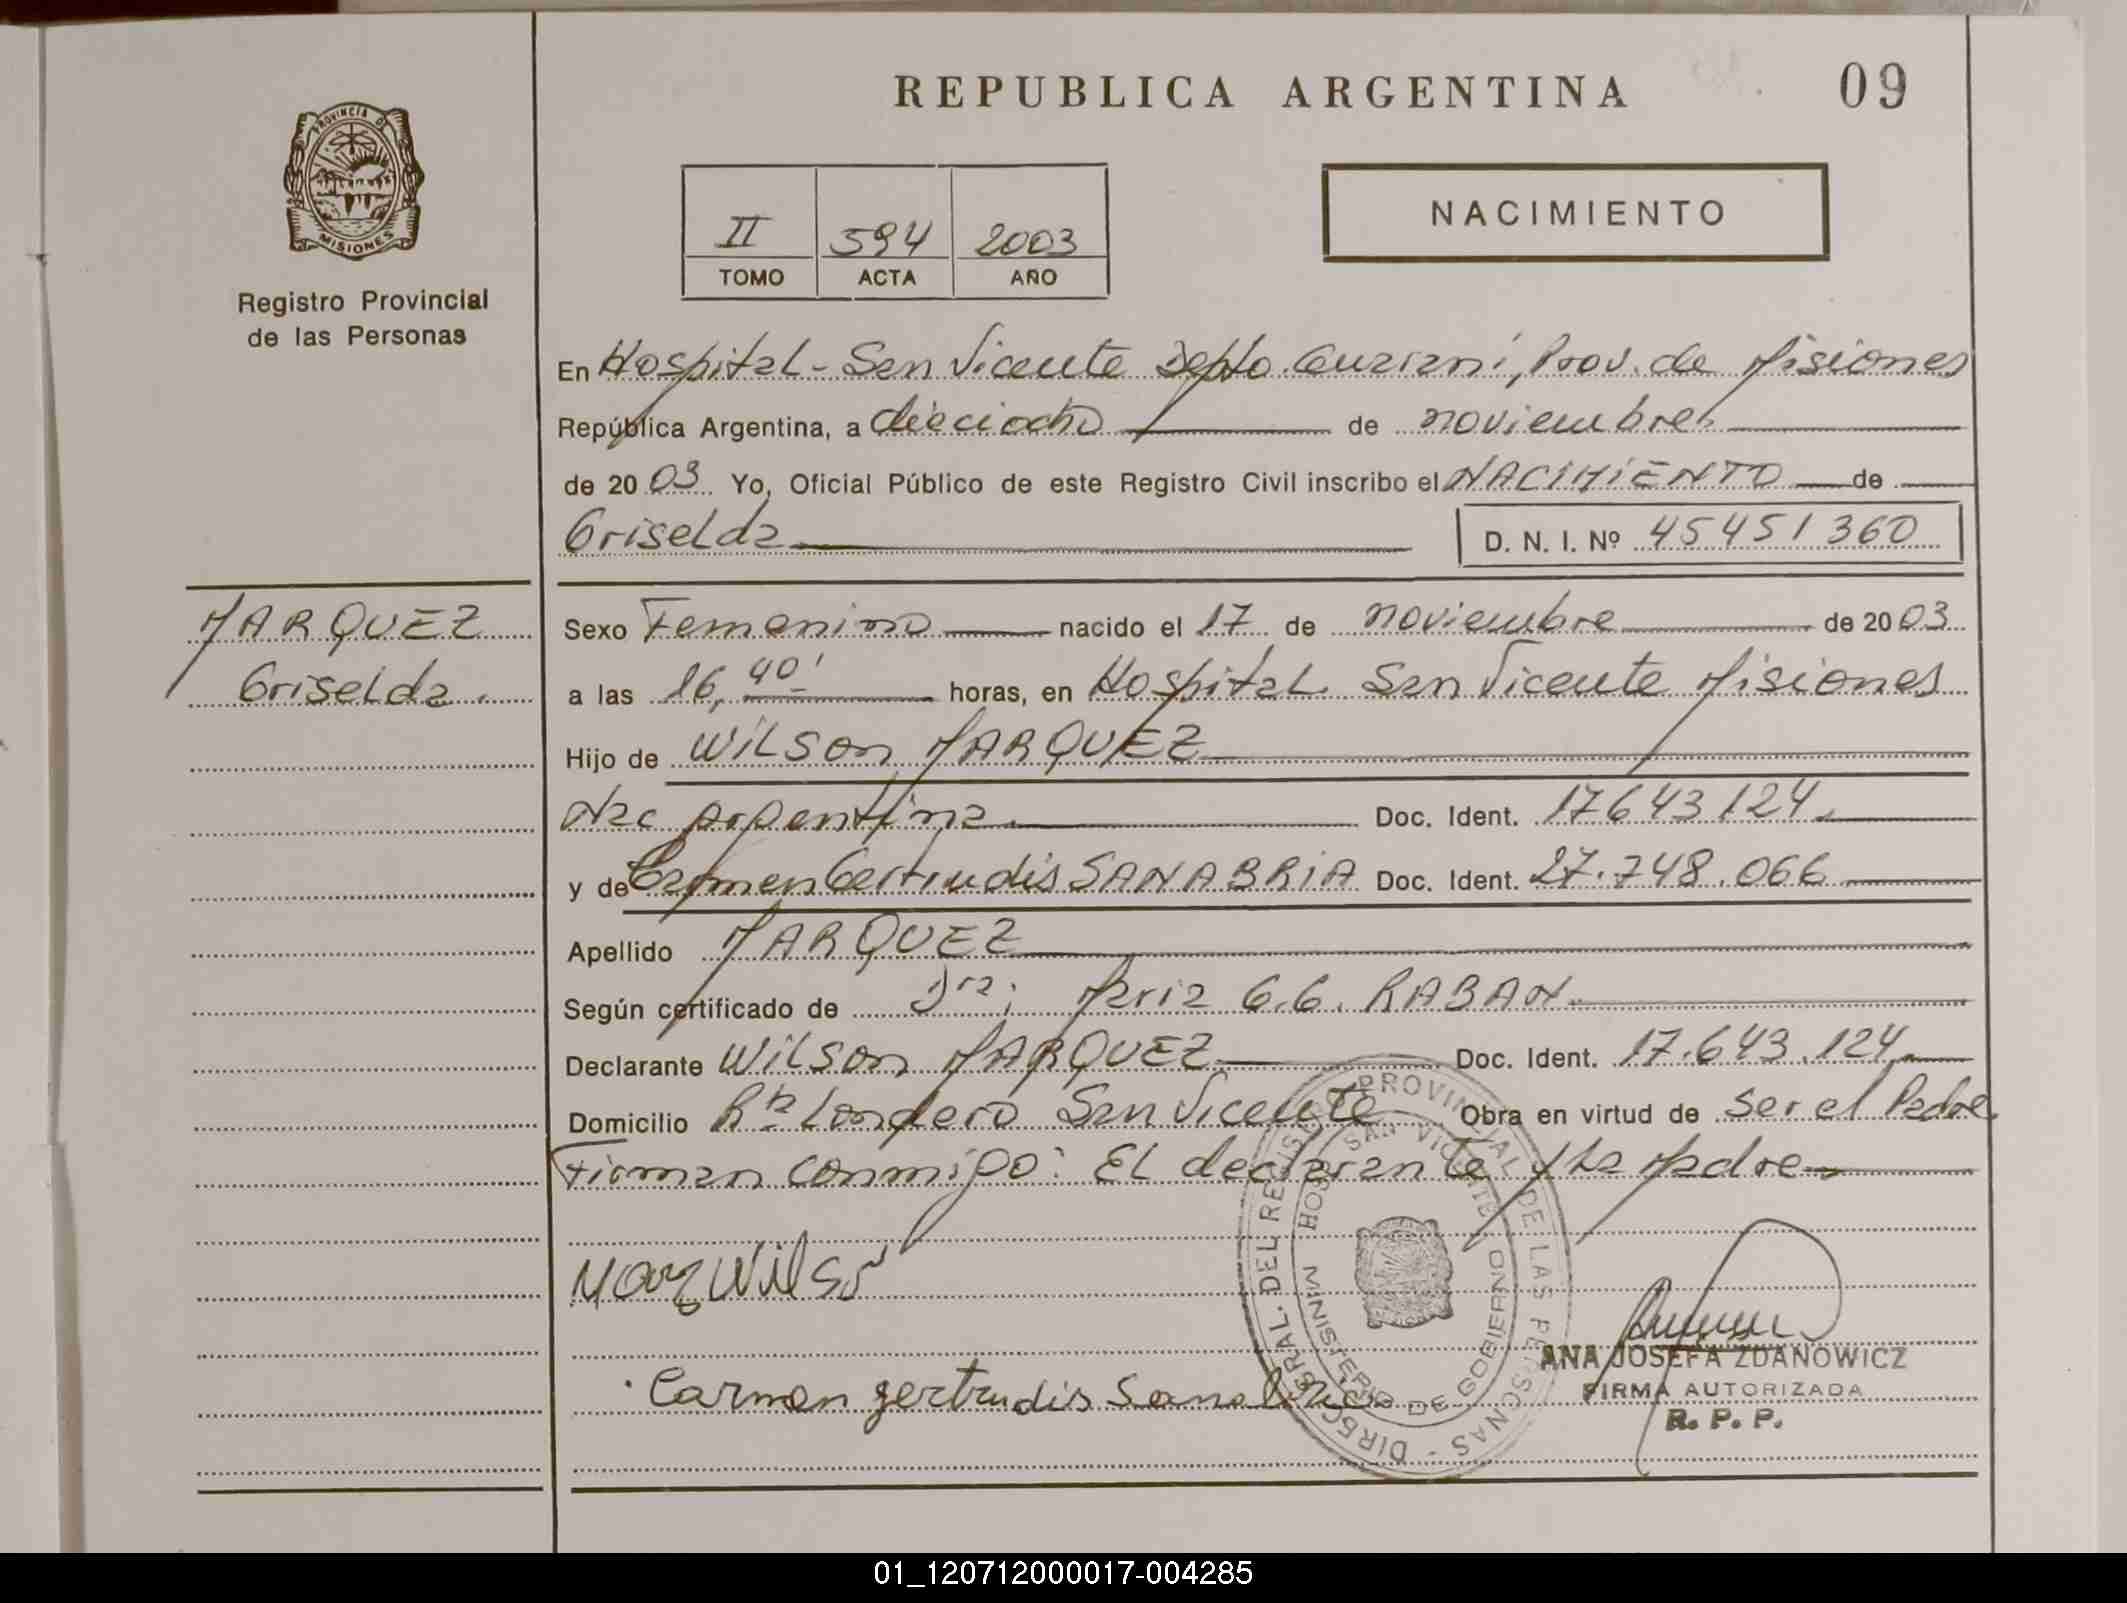 REPUBLICA ARGENTINA
09
PROVINCIA DE
MISIONES
Registro Provincial
de las Personas
II 594 2003
TOMO ACTA AÑO
NACIMIENTO
En Hospital - San Vicente Depto Guarani, Prov. de Misiones
República Argentina, a dieciocho de noviembre
de 2003 Yo, Oficial Público de este Registro Civil inscribo el NACIMIENTO de
Griselda
D. N. I. Nº 45451360
MARQUEZ
Griselda.
Sexo Femenino nacido el 17 de noviembre de 2003
a las 16,40' horas, en Hospital San Vicente Misiones
Hijo de Wilson MARQUEZ
Nac argentina Doc. Ident. 17643124
y de Carmen Gertrudis SANABRIA Doc. Ident. 27.748.066
Apellido MARQUEZ
Según certificado de Dra: Maria G.G. RABAN
Declarante Wilson MARQUEZ Doc. Ident. 17.643.124
Domicilio Rta Londero San Vicente Obra en virtud de ser el Padre
Firman conmigo: El declarante y La Madre
Marq Wilso
Carmen gertrudis Sanabria
DIRECC. GRAL. DEL REGISTRO PROVINCIAL DE LAS PERSONAS -
HOSP. SAN VICENTE
MINISTERIO DE GOBIERNO
ANA JOSEFA ZDANOWICZ
FIRMA AUTORIZADA
R. P. P.
01_120712000017-004285